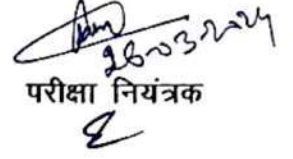 26-03-2024
परीक्षा नियंत्रक